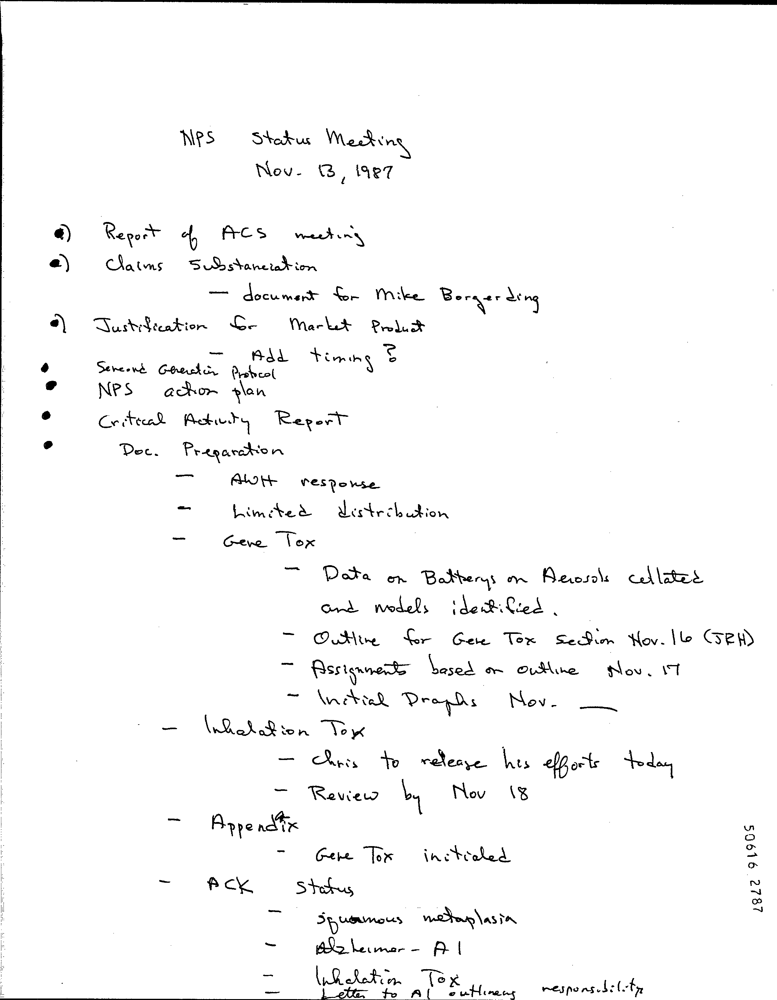 NPS Status Meeting
Nov. 13, 1987
•) Report of ACS meeting
•) Claims Substanciation
— document for Mike Borgerding
•) Justification for Market Product
— Add timing?
• Sencond Generation Protocol
• NPS action plan
• Critical Activity Report
• Doc. Preparation
— AWH response
— Limited distribution
— Gene Tox
— Data on Batterys on Aerosols collated
and models identified.
— Outline for Gene Tox section Nov. 16 (JRH)
— Assignments based on outline Nov. 17
— Initial Draphs Nov. __
— Inhalation Tox
— Chris to release his efforts today
— Review by Nov 18
— Appendix
— Gene Tox initialed
— ACK Status
— squamous metaplasia
— Alzheimer - Al
— Inhalation Tox
— Letter to Al outlineng responsibility
50616 2787